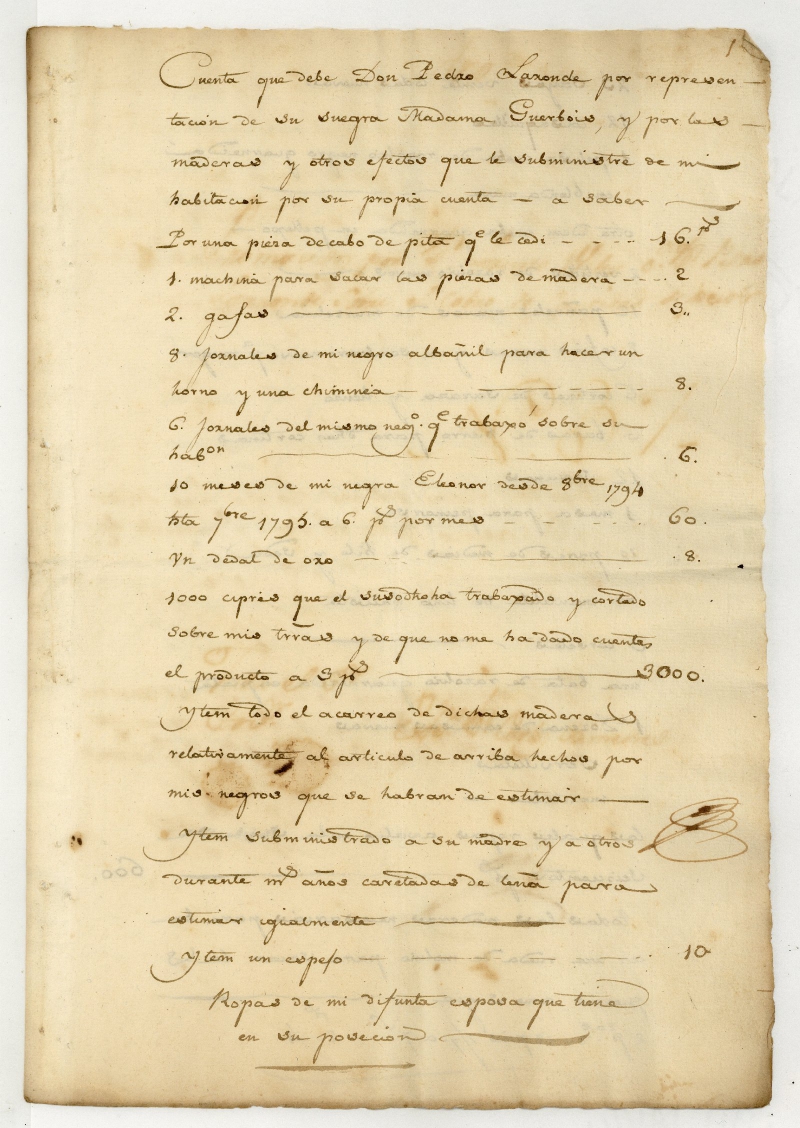 1
Cuenta que debe Don Pedro Laronde por represen-
tacion de su suegra Madama Guerbois, y por las
maderas y otros efectos que le subministre de mi
habitacion por su propia cuenta - a saber
Por una pieza de cabo de pita qe le cedi - - - - 16. ps
1. machina para sacar las piezas de madera - - - - 2
2. gafas 3..
8. Jornales de mi negro albañil para hacer un
horno y una chiminea 8.
6. Jornales del mismo nego. qe trabaxó sobre su
habon 6.
10 meses de mi negra Eleonor desde 8bre 1794
hta 7bre 1795. a 6. ps por mes 60.
Vn dedal de oro 8.
1000 cipres que el susodho ha trabaxado y cortado
sobre mis trras y de que no me ha dado cuentas
el producto a 3 ps 3000.
Ytem todo el acarreo de dichas maderas
relativamente al articulo de arriba hechos por
mis negros que se habran de estimar
Ytem subministrado a su madre y a otros
durante ms años caretadas de leña para
estimar igualmente
Ytem un espejo 10
Ropas de mi difunta esposa que tiene
en su posecion